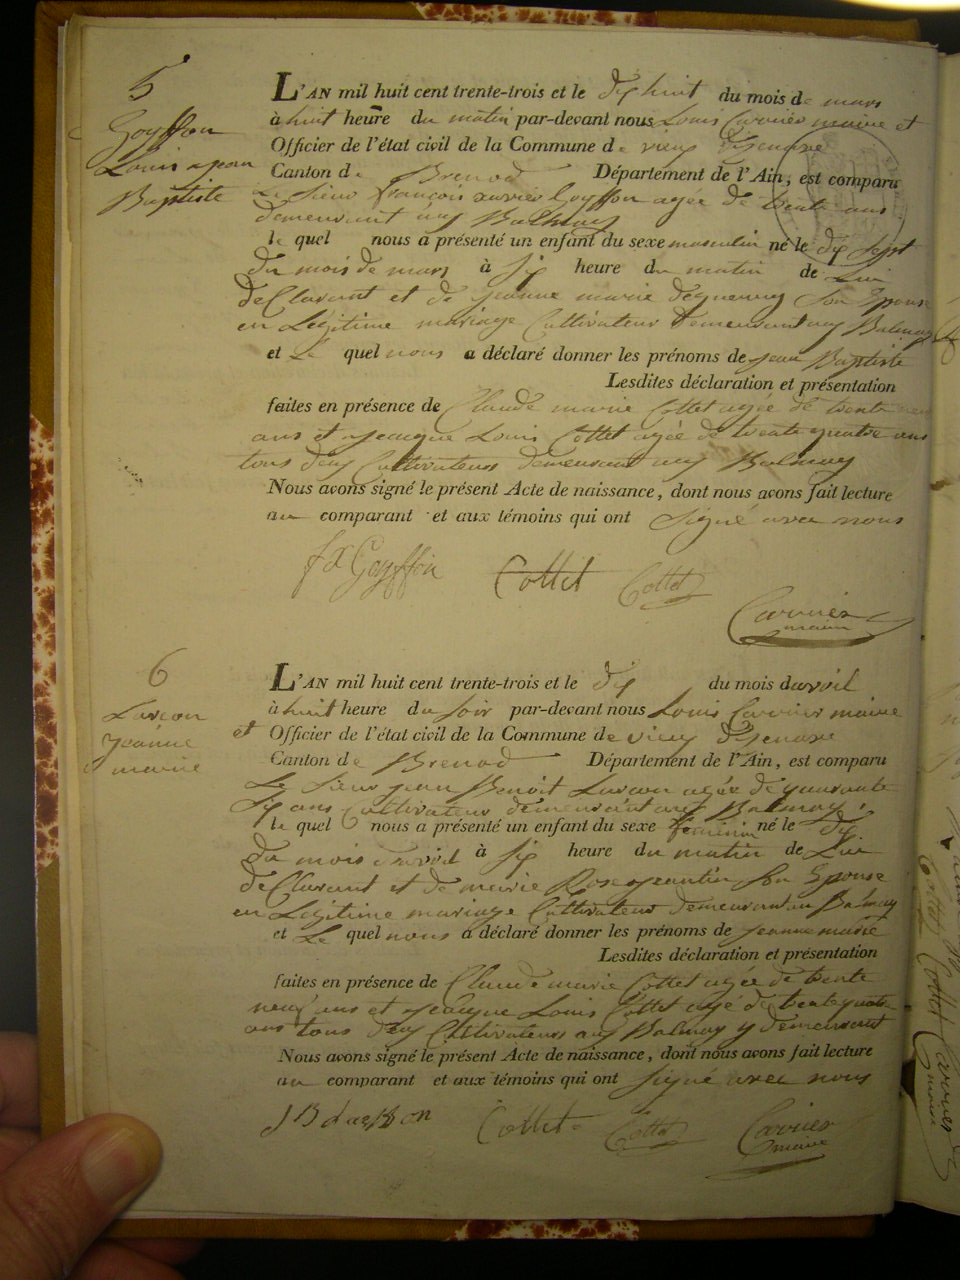 5
Goyffon
Louis Jean
Baptiste
L'AN mil huit cent trente-trois et le dix huit du mois de mars
à huit heure du matin par-devant nous Louis Carrier maire et
Officier de l'état civil de la Commune de vieux d'jsenave
Canton de Brenod Département de l'Ain, est comparu
Le Sieur françois xavier Goyffon agée de trente ans
demeurant aux Balmay
le quel nous a présenté un enfant du sexe masculin né le dix sept
du mois de mars à six heure du matin de Lui
déClarant et de jeanne marie son Epouse
en Légitime mariage Cultivateur demeurant aux Balmay
et Le quel nous a déclaré donner les prénoms de jean Baptiste
Lesdites déclaration et présentation
faites en présence de Claude marie Cottet agée de trente neuf
ans et jeacque Louis Cottet agée de trente quatre ans
tous deux Cultivateurs demeurant aux Balmay
Nous avons signé le présent Acte de naissance, dont nous avons fait lecture
au comparant et aux témoins qui ont signé avec nous
fx Goyffon Cottet Cottet
Carrier
maire
6
Larçon
Jeanne
marie
L'AN mil huit cent trente-trois et le dix du mois davril
à huit heure du soir par-devant nous Louis Carrier maire
et Officier de l'état civil de la Commune de vieux d'jsenave
Canton de Brenod Département de l'Ain, est comparu
Le Sieur jean Benoit Larçon agée de quarante
six ans Cultivateur demeurant aux Balmay
le quel nous a présenté un enfant du sexe féminin né le dix
du mois davril à six heure du matin de Lui
déClarant et de marie Rose jeantin son Epouse
en Légitime mariage Cultivateur demeurant au Balmay
et Le quel nous a déclaré donner les prénoms de jeanne marie
Lesdites déclaration et présentation
faites en présence de Claude marie Cottet agée de trente
neuf ans et jeacque Louis Cottet agé de trente quatre
ans tous deux Cultivateurs aux Balmay y demeurant
Nous avons signé le présent Acte de naissance, dont nous avons fait lecture
au comparant et aux témoins qui ont signé avec nous
Cottet Cottet Carrier
maire
Cottet Cottet Carrier
maire